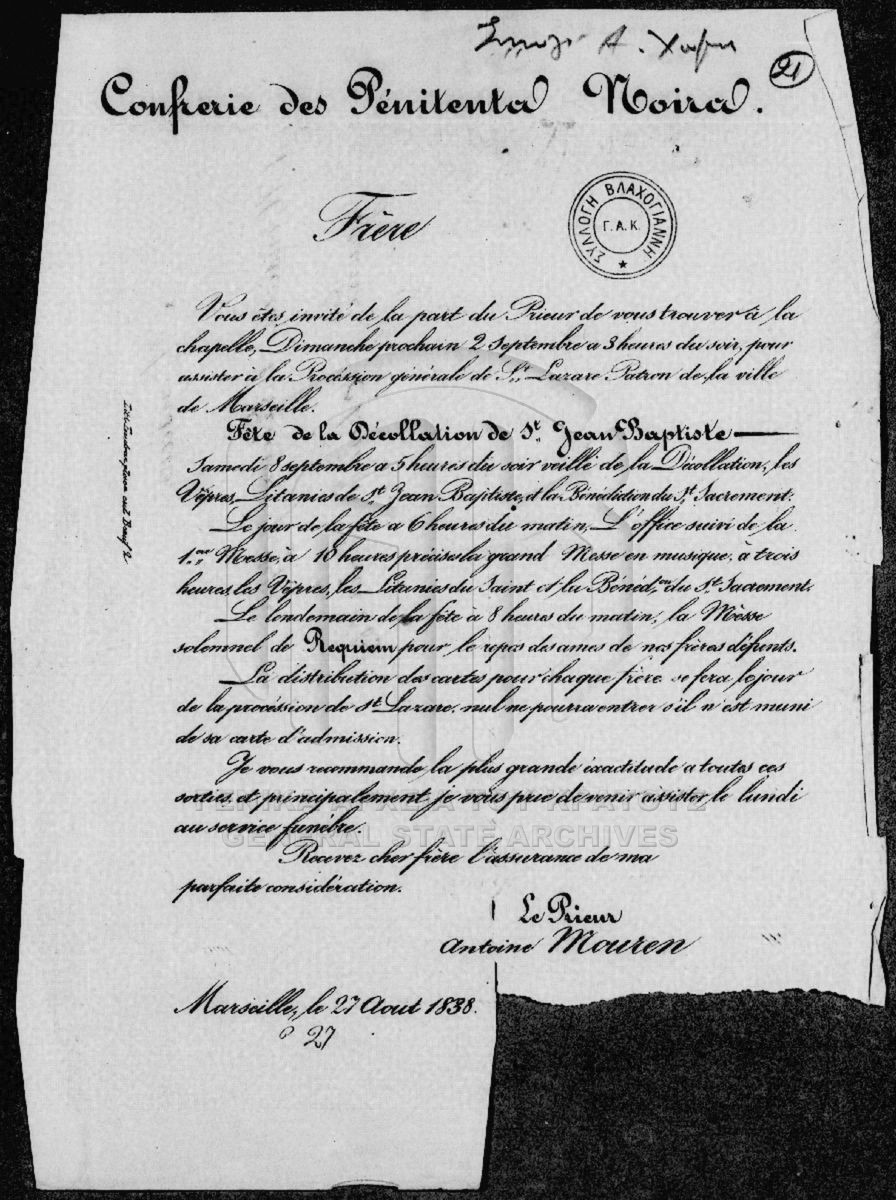 A.
21
Confrerie des Pénitents Noirs.
Frère
ΣΥΛΛΟΓΗ ΒΛΑΧΟΓΙΑΝΝΗ
Γ.Α.Κ.
Vous êtes invité de la part du Prieur de vous trouver à la
chapelle, Dimanche prochain 2 Septembre a 3 heures du soir, pour
assister à la Procéssion générale de St. Lazare Patron de la ville
de Marseille.
Fête de la Décollation de St. Jean Baptiste
Samedi 8 septembre a 5 heures du soir veille de la Décollation, les
Vêpres, Litanies de St. Jean Baptiste, et la Bénédiction du St. Sacrement.
Le jour de la fête a 6 heures du matin, L'office suivi de la
1.ere Messe, à 10 heures précises la grand Messe en musique, à trois
heures les Vêpres, les Litanies du Saint et la Bénéd.on du St. Sacrement.
Le lendemain de la fête à 8 heures du matin, la Mèsse
solemnel de Requiem pour le repos des ames de nos frères défunts.
La distribution des cartes pour chaque frère se fera le jour
de la procéssion de St. Lazare, nul ne pourra entrer s'il n'est muni
de sa carte d'admission.
Je vous recommande la plus grande éxactitude a toutes ces
sorties, et principalement je vous prie de venir assister le lundi
au service funèbre.
GENERAL STATE ARCHIVES
Recevez cher frère l'assurance de ma
parfaite considération.
Le Prieur
Antoine Mouren
Marseille, le 27 Aout 1838.
27